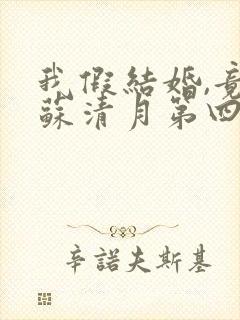 我假結婚,竟
蘇清月第四
辛諾夫斯基